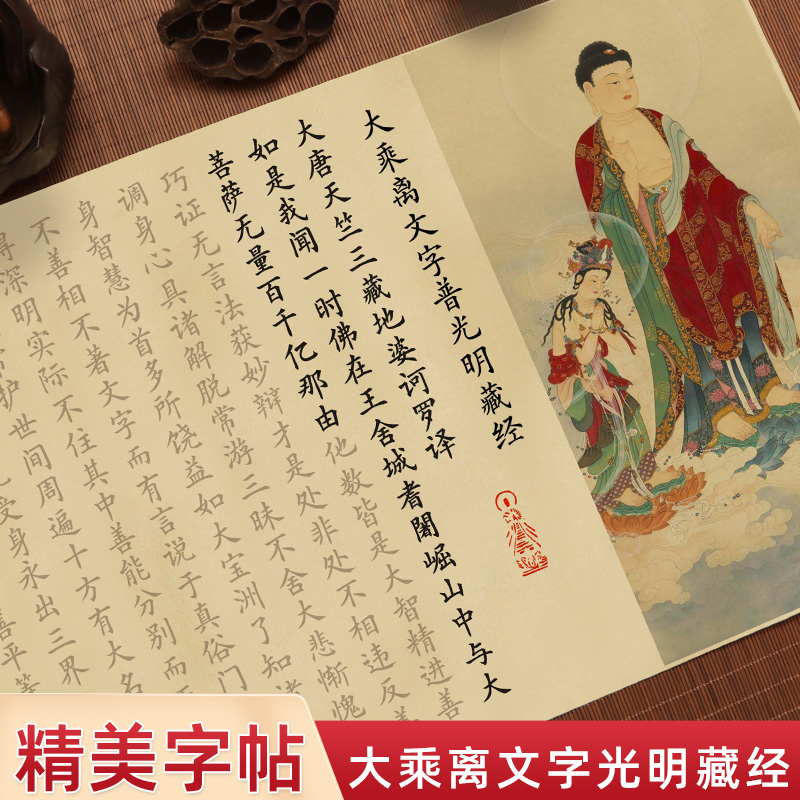 大乘离文字普光明藏经
大唐天竺三藏地婆诃罗译
如是我闻一时佛在王舍城耆闍崛山中与大
菩萨无量百千亿那由他数皆是大智精进善
巧证无言法获妙辩才是处非处不相违反善
调身心具诸解脱常游三昧不舍大悲惭愧
身智慧为首多所饶益如大宝洲了知诸
不善相不著文字而有言说于真俗门
深明实际不住其中善能分别而
护世间周遍十方有大名
受身永出三界
善平
精美字帖
大乘离文字光明藏经